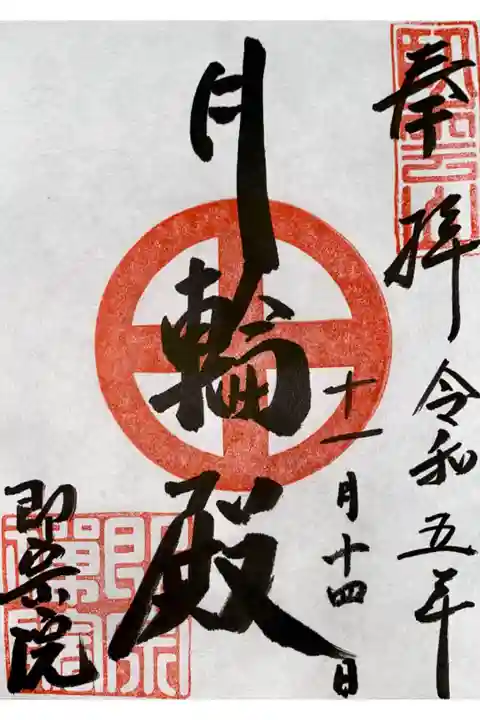 奉拝
令和五年
十一月十四日
月輪殿
即宗院